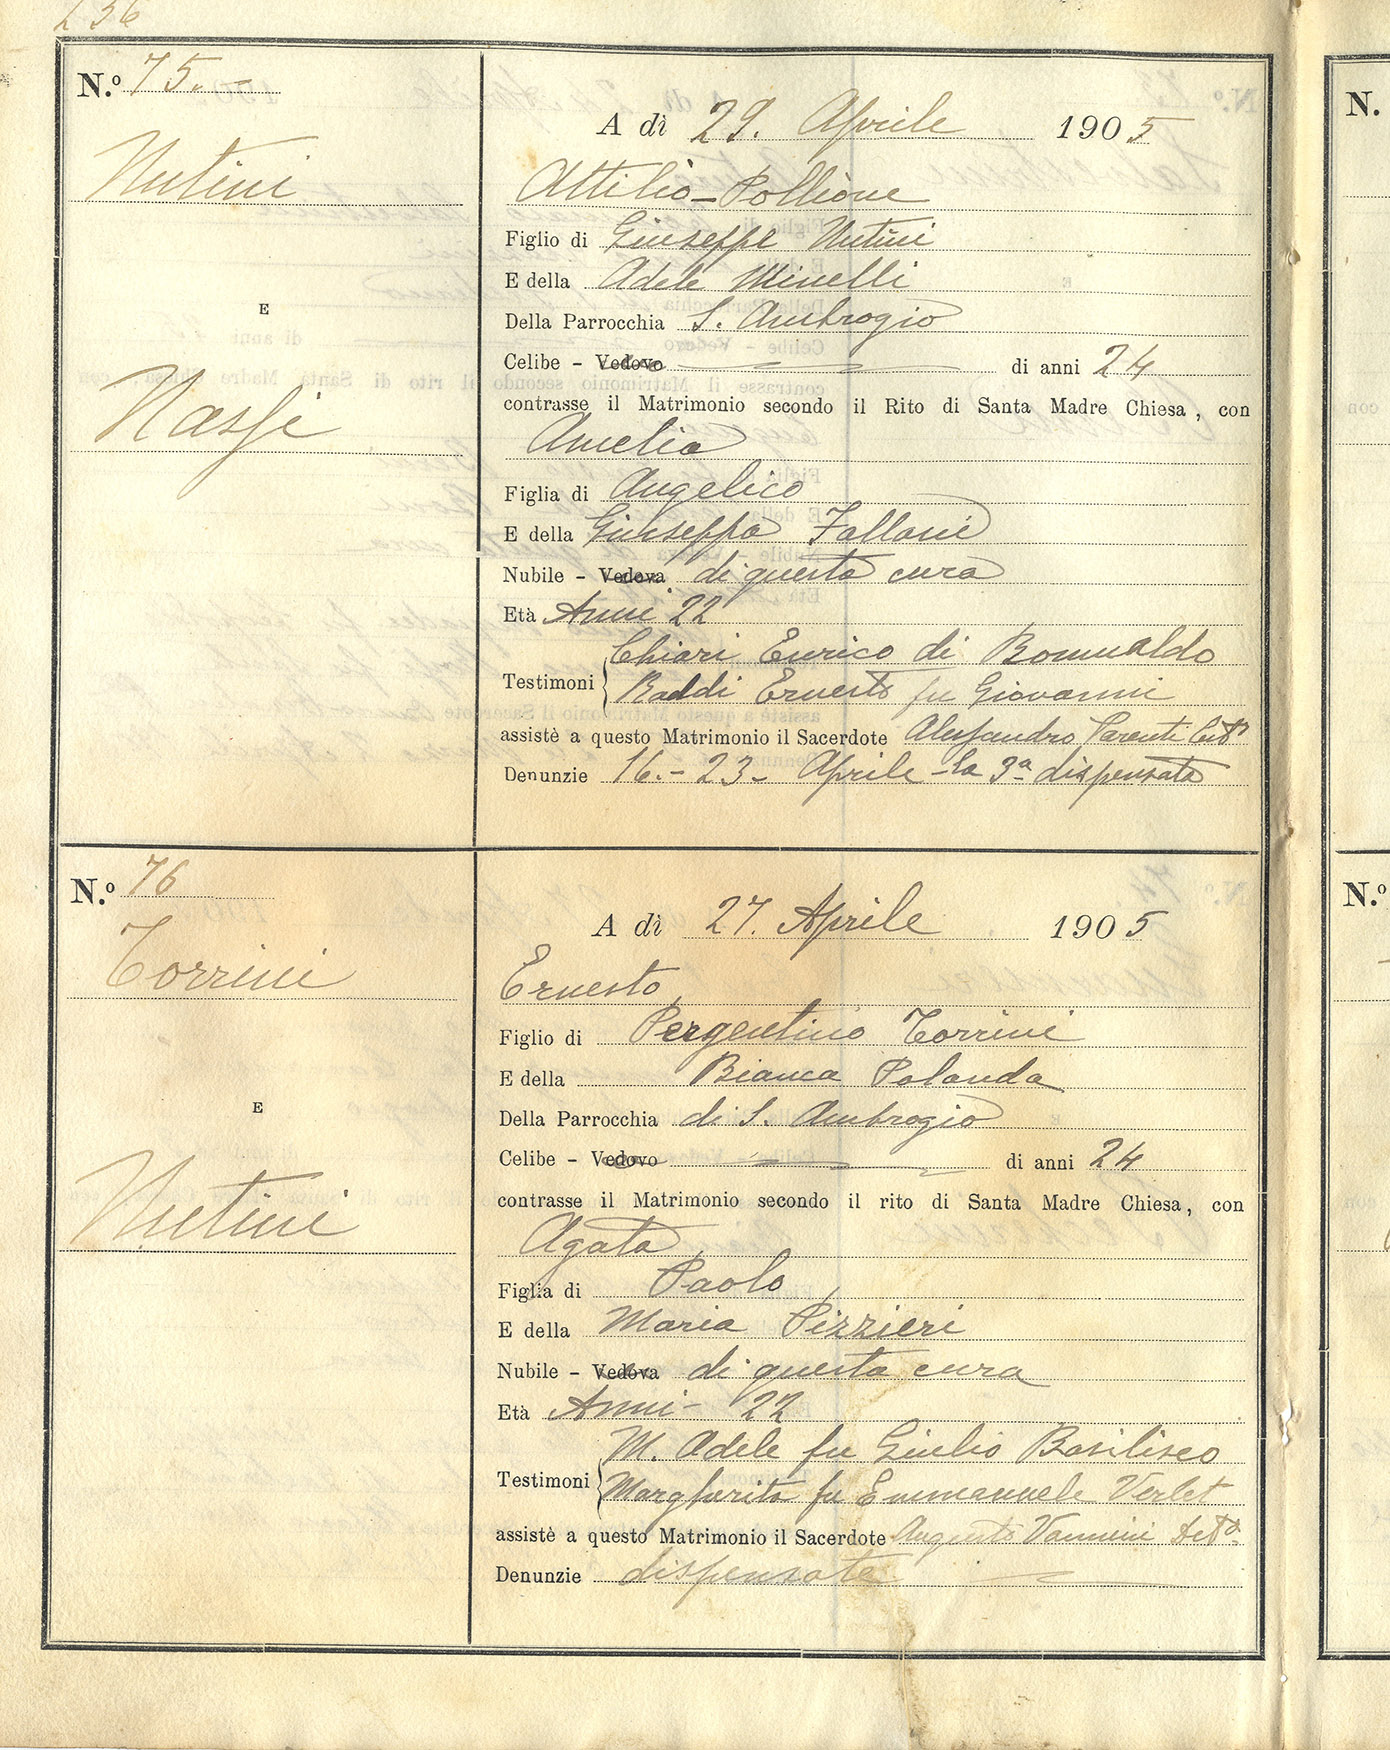 236
N.º 75.
Nutini
E
Nassi
A dì 29. Aprile 1905
Attilio-Pollione
Figlio di Giuseppe Nutini
E della Adele Minelli
Della Parrocchia S. Ambrogio
Celibe - Vedovo di anni 24
contrasse il Matrimonio secondo il Rito di Santa Madre Chiesa, con
Amelia
Figlia di Angelico
E della Giuseppa Fallani
Nubile - Vedova di questa cura
Età Anni 22
Chiari Enrico di Romualdo
Testimoni Raddi Ernesto fu Giovanni
assistè a questo Matrimonio il Sacerdote Alessandro Parenti
Denunzie 16.-23- Aprile - la 3ª dispensata
N.º 76
Torrini
E
Nutini
A dì 27. Aprile 1905
Ernesto
Figlio di Pergentino Torrini
E della Bianca Palanda
Della Parrocchia di S. Ambrogio
Celibe - Vedovo di anni 24
contrasse il Matrimonio secondo il rito di Santa Madre Chiesa, con
Agata
Figlia di Paolo
E della Maria Pizzieri
Nubile - Vedova di questa cura
Età Anni- 22
M. Adele fu Giulio Basilisco
Testimoni Margherita fu Emmanuele Verlet
assistè a questo Matrimonio il Sacerdote Augusto Vannini
Denunzie dispensate
N.
N.º